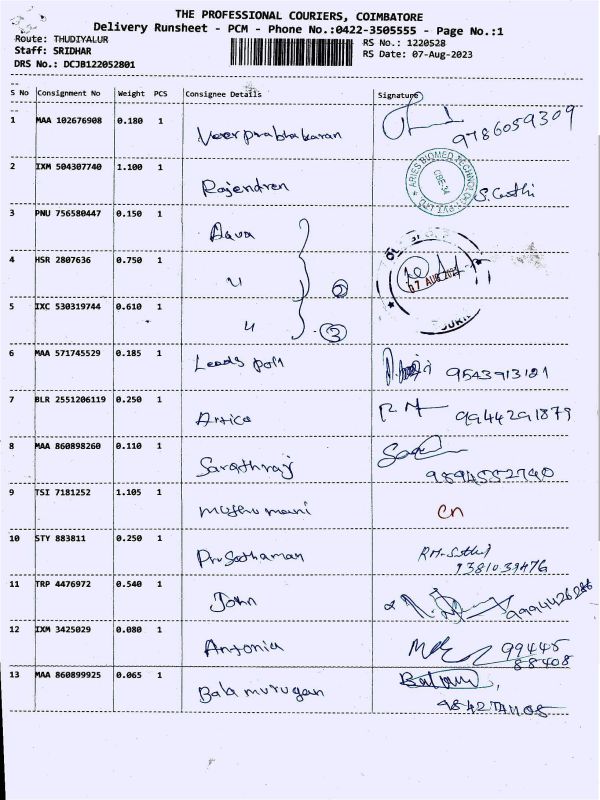 THE PROFESSIONAL COURIERS, COIMBATORE
Delivery Runsheet - PCM - Phone No.:0422-3505555 - Page No.:1
Route: THUDIYALUR RS No.: 1220528
Staff: SRIDHAR RS Date: 07-Aug-2023
DRS No.: DCJB122052801
S No Consignment No Weight PCS Consignee Details Signature
1 MAA 102676908 0.180 1 Veerprabhakaran 9786059309
2 IXM 504307740 1.100 1 Rajendren ARIES BIOMED TECHNOLOGIES PVT LTD CBE-34
3 PNU 756580447 0.150 1
4 HSR 2807636 0.750 1 07 AUG
5 IXC 530319744 0.610 1 3
6 MAA 571745529 0.185 1 Leads 9543913121
7 BLR 2551206119 0.250 1 Artica 9944291879
8 MAA 860898260 0.110 1 Sarathraj 9894552740
9 TSI 7181252 1.105 1 Muthu mani cn
10 STY 883811 0.250 1
11 TRP 4476972 0.540 1 John
12 IXM 3425029 0.080 1 Antonia 99445
88408
13 MAA 860899925 0.065 1 Bala murugan